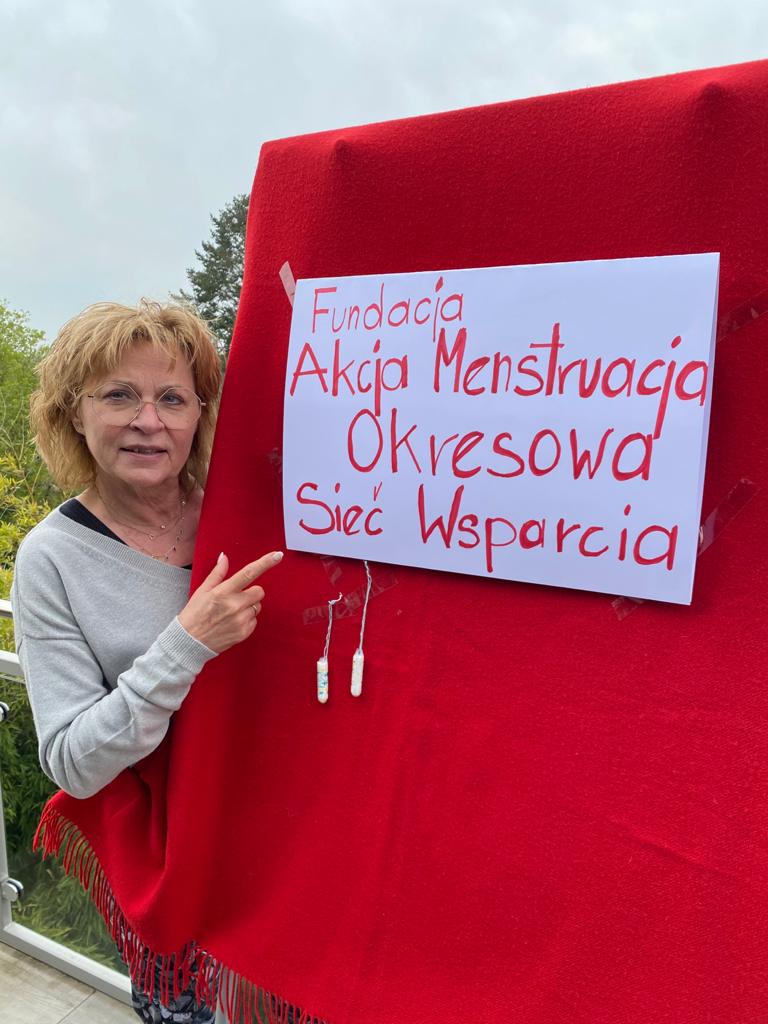 Fundacja
Akcja Menstruacja
Okresowa
Sieć Wsparcia